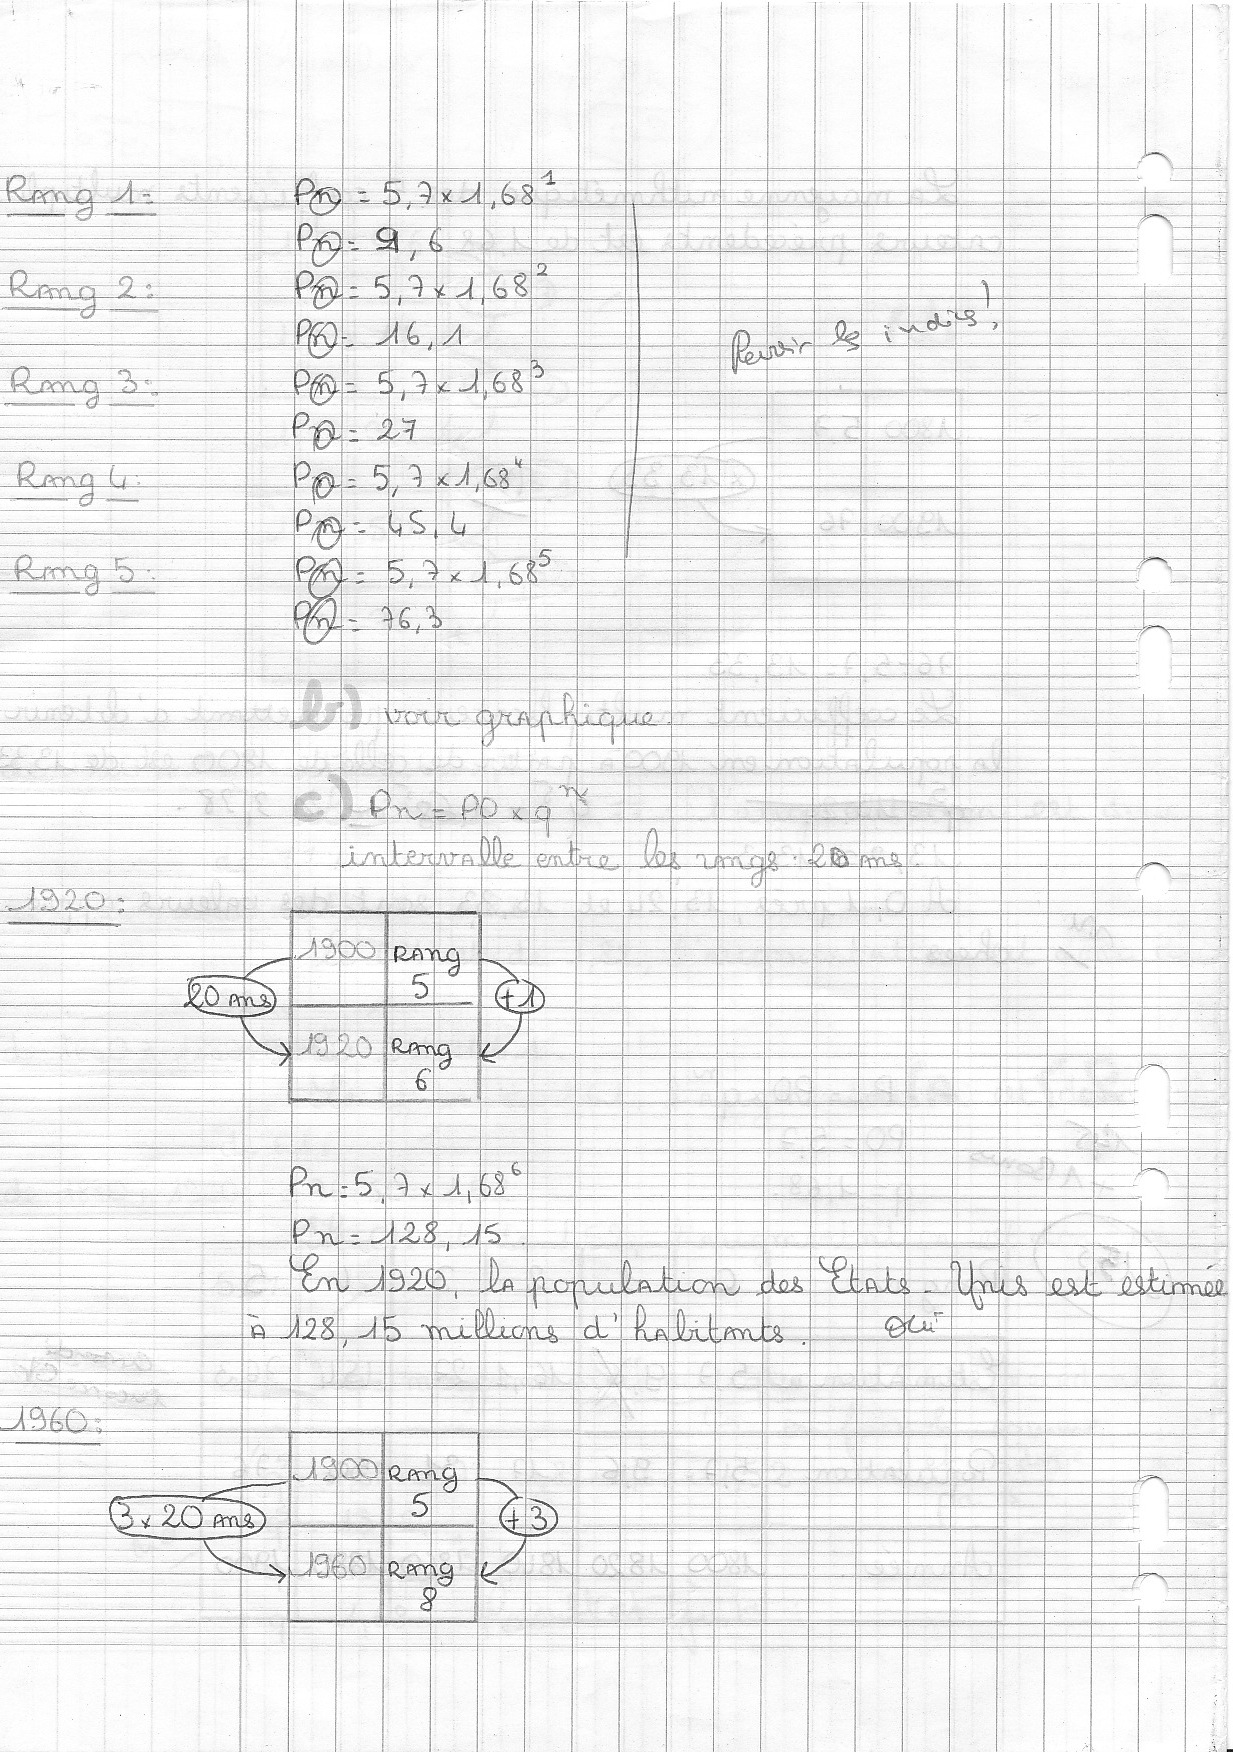 Rang 1: Pn = 5,7 × 1,68^1
Pn = 9,6
Rang 2: Pn = 5,7 × 1,68^2
Pn = 16,1
Revoir les indices!
Rang 3: Pn = 5,7 × 1,68^3
Pn = 27
Rang 4: Pn = 5,7 × 1,68^4
Pn = 45,4
Rang 5: Pn = 5,7 × 1,68^5
Pn = 76,3
b) voir graphique.
c) Pn = P0 × q^n
intervalle entre les rangs: 20 ans.
1920:
1900 Rang 5
20 ans +1
1920 Rang 6
Pn = 5,7 × 1,68^6
Pn = 128,15
En 1920, la population des Etats-Unis est estimée
à 128,15 millions d'habitants. oui
1960:
1900 Rang 5
3 × 20 ans +3
1960 Rang 8